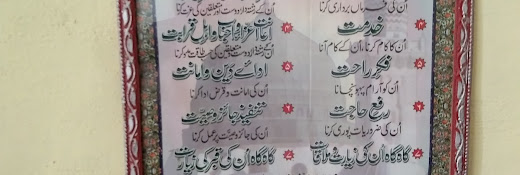 اُن کی فرماں برداری کرنا
خدمت
اُن کا کام کرنا، اُن کے کام آنا
فکرِ راحت
اُن کو آرام پہونچانا
رفعِ حاجت
اُن کی ضروریات پوری کرنا
گاہ گاہ اُن کی زیارت و ملاقات
اعانت اعزاء و احباب و اہلِ قرابت
ادائے دین و امانت
اُن کی امانت و قرض ادا کرنا
تنفیذِ جائز وصیت
اُن کی جائز وصیت پر عمل کرنا
گاہ گاہ اُن کی قبر کی زیارت